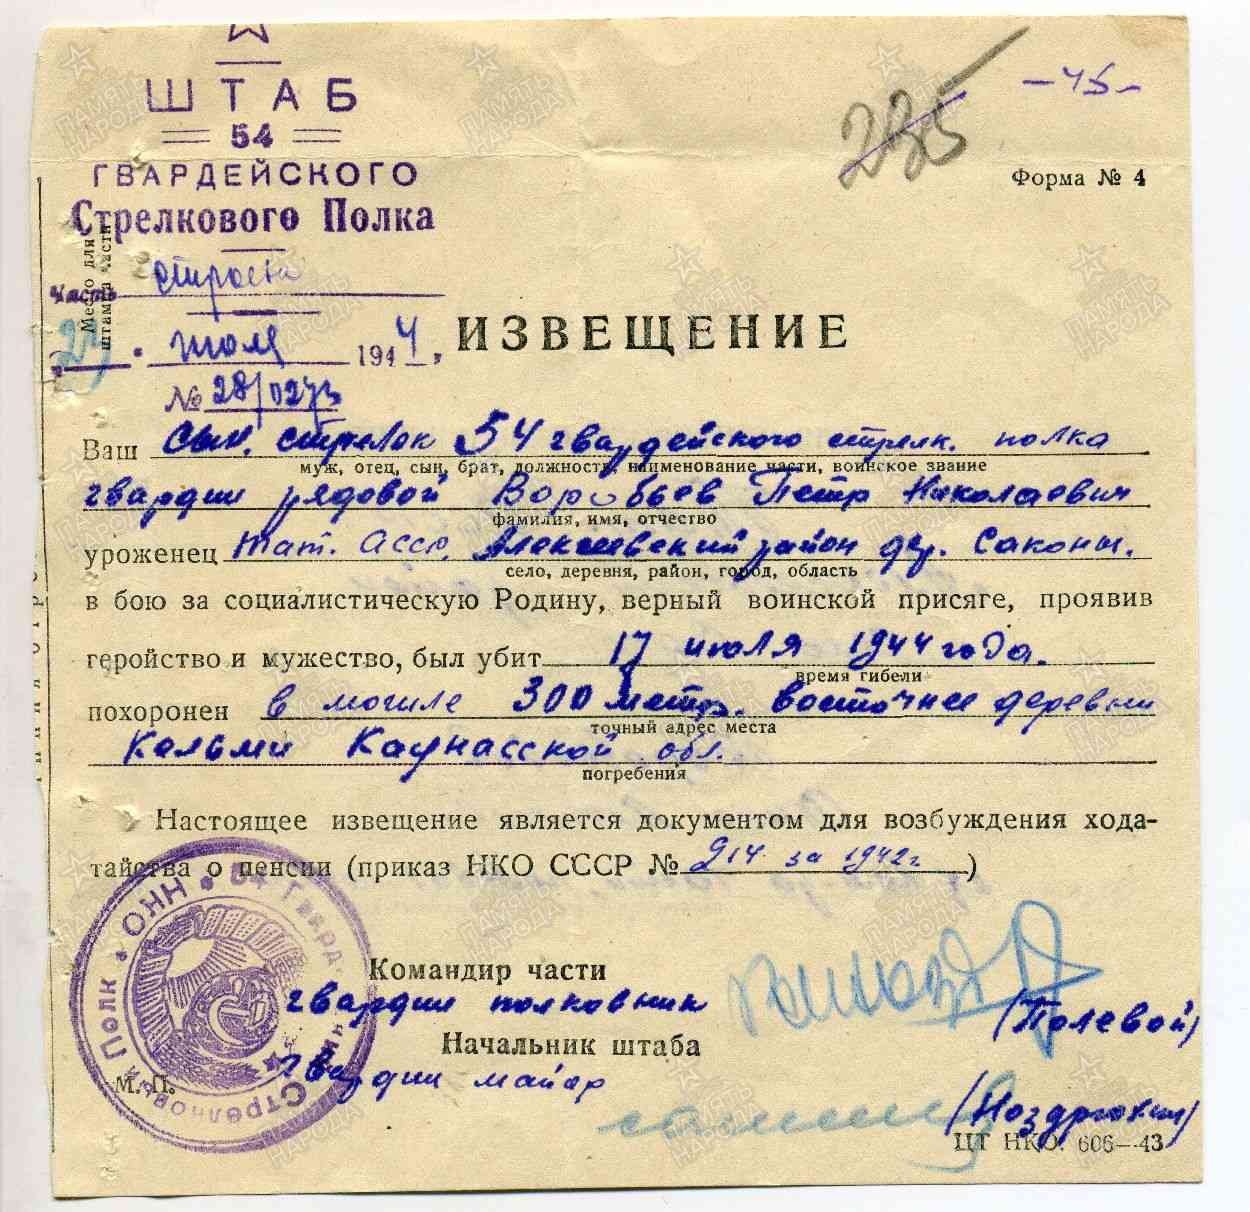 ШТАБ
54
ГВАРДЕЙСКОГО
Стрелкового Полка
Место для
штампа части
часть
июля 1944
№ 28/0273
235
-45-
Форма № 4
ИЗВЕЩЕНИЕ
Ваш сын, стрелок 54 гвардейского стрелк. полка
муж, отец, сын, брат, должность, наименование части, воинское звание
гвардии рядовой Воробьев Петр Николаевич
фамилия, имя, отчество
уроженец Тат. Асср, Алексеевский район дер. Саконы.
село, деревня, район, город, область
в бою за социалистическую Родину, верный воинской присяге, проявив
геройство и мужество, был убит 17 июля 1944 года.
время гибели
похоронен в могиле 300 метр. восточнее деревни
точный адрес места
Кальми Каунасской обл.
погребения
Настоящее извещение является документом для возбуждения хода-
тайства о пенсии (приказ НКО СССР № 214 за 1942г )
Командир части
гвардии полковник (Полевой)
Начальник штаба
гвардии майор (Ноздрюхин)
М. П.
54 Гвард. Стрелковый Полк • НКО
ЦТ НКО. 606—43
ПАМЯТЬ НАРОДА